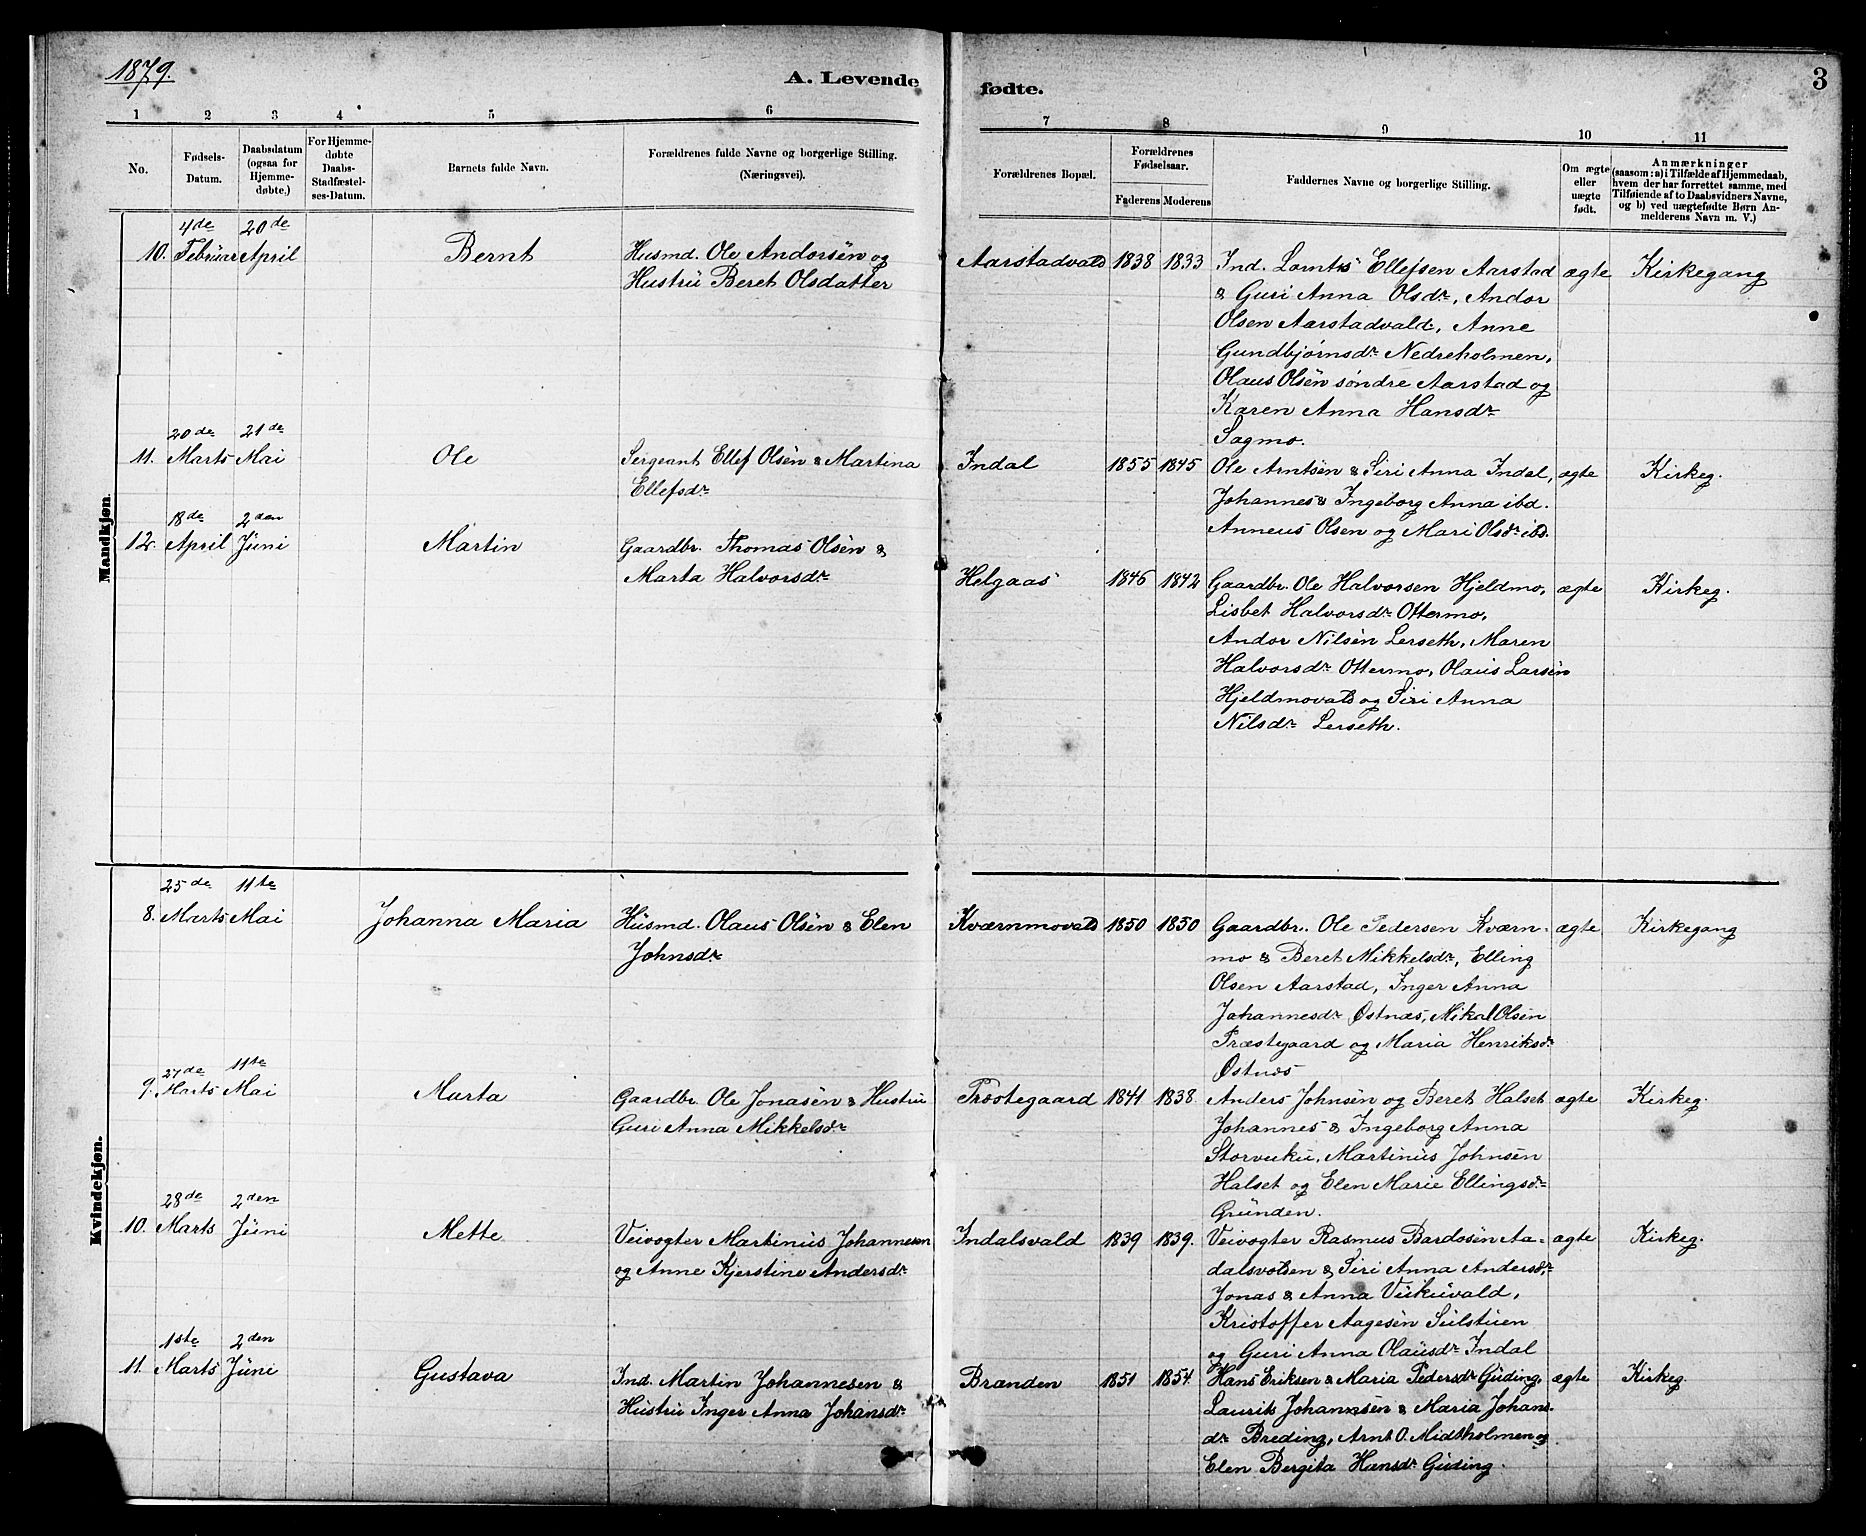 1879.
A. Levende
fødte.
3
1 2 3 4 5 6 7 8 9 10 11
No.
Fødsels-
Datum.
Daabsdatum
(ogsaa for
Hjemme-
døbte.)
For Hjemme-
døbte
Daabs-
Stadfæstel-
ses-Datum.
Barnets fulde Navn.
Forældrenes fulde Navne og borgerlige Stilling.
(Næringsvei).
Forældrenes Bopæl.
Forældrenes
Fødselsaar.
Faderens Moderens
Faddernes Navne og borgerlige Stilling.
Om ægte
eller
uægte
født.
Anmærkninger
(saasom: a) i Tilfælde af Hjemmedaab,
hvem der har forrettet samme, med
Tilføiende af to Daabsvidners Navne,
og b) ved uægtefødte Børn An-
melderens Navn m. V.)
Mandkjøn.
4de 20de
10. Februar April Bernt Husmd. Ole Andorsen og
Hustru Beret Olsdatter
Aarstadvald 1838 1833 Ind. Lornts Ellefsen Aarstad ægte Kirkegang
& Guri Anna Olsdr, Andor
Olsen Aarstadvald, Anne
Gundbjørnsdr Nedreholmen,
Olaus Olsen søndre Aarstad og
Karen Anna Hansdr
Sagmo.
20de 21de
11. Marts Mai Ole Sergeant Ellef Olsen & Martina
Ellefsdr
Indal 1855 1845 Ole Arntsen & Siri Anna Indal, ægte Kirkeg.
Johannes & Ingeborg Anna ibd.
Anneus Olsen og Mari Olsdr ibd.
18de 2den
12. April Juni Martin Gaardbr. Thomas Olsen &
Marta Halvorsdr
Helgaas 1846 1842 Gaardbr. Ole Halvorsen Hjeldmo, ægte Kirkeg.
Lisbet Halvorsdr Ottermo,
Andor Nilsen Lerseth, Maren
Halvorsdr Ottermo, Olaus Larsen
Hjeldmovald og Siri Anna
Nilsdr Lerseth.
Kvindekjøn.
25de 11te
8. Marts Mai Johanna Maria Husmd. Olaus Olsen & Elen
Johnsdr
Kværnmovald 1850 1850 Gaardbr. Ole Pedersen Kværn- ægte Kirkegang
mo & Beret Mikkelsdr, Elling
Olsen Aarstad, Inger Anna
Johannesdr Østnæs, Mikal Olsen
Præstegaard og Maria Henriksdr
Østnæs
27de 11te
9. Marts Mai Marta Gaardbr. Ole Jonasen & Hustru
Guri Anna Mikkelsdr
Præstegaard 1841 1838 Anders Johnsen og Beret Halset ægte Kirkeg.
Johannes & Ingeborg Anna
Storvuku, Martinus Johnsen
Halset og Elen Marie Ellingsdr
Grunden.
28de 2den
10. Marts Juni Mette Veivogter Martinus Johannesen
og Anne Kjerstine Andersdr
Indalsvald 1839 1839. Veivogter Rasmus Bardosen Aa- ægte Kirkeg.
dalsvolden & Siri Anna Andersdr,
Jonas & Anna Vukuvald,
Kristoffer Aagesen Sulstuen
og Guri Anna Olausdr Indal
1ste 2den
11. Marts Juni Gustava Ind. Martin Johannesen &
Hustru Inger Anna Johansdr
Branden 1851 1854 Hans Eriksen & Maria Pedersdr Guding, ægte Kirkeg.
Laurits Johannsen & Maria Johans
dr Breding, Arnt O. Midtholmen og
Elen Bergita Hansdr Guding.